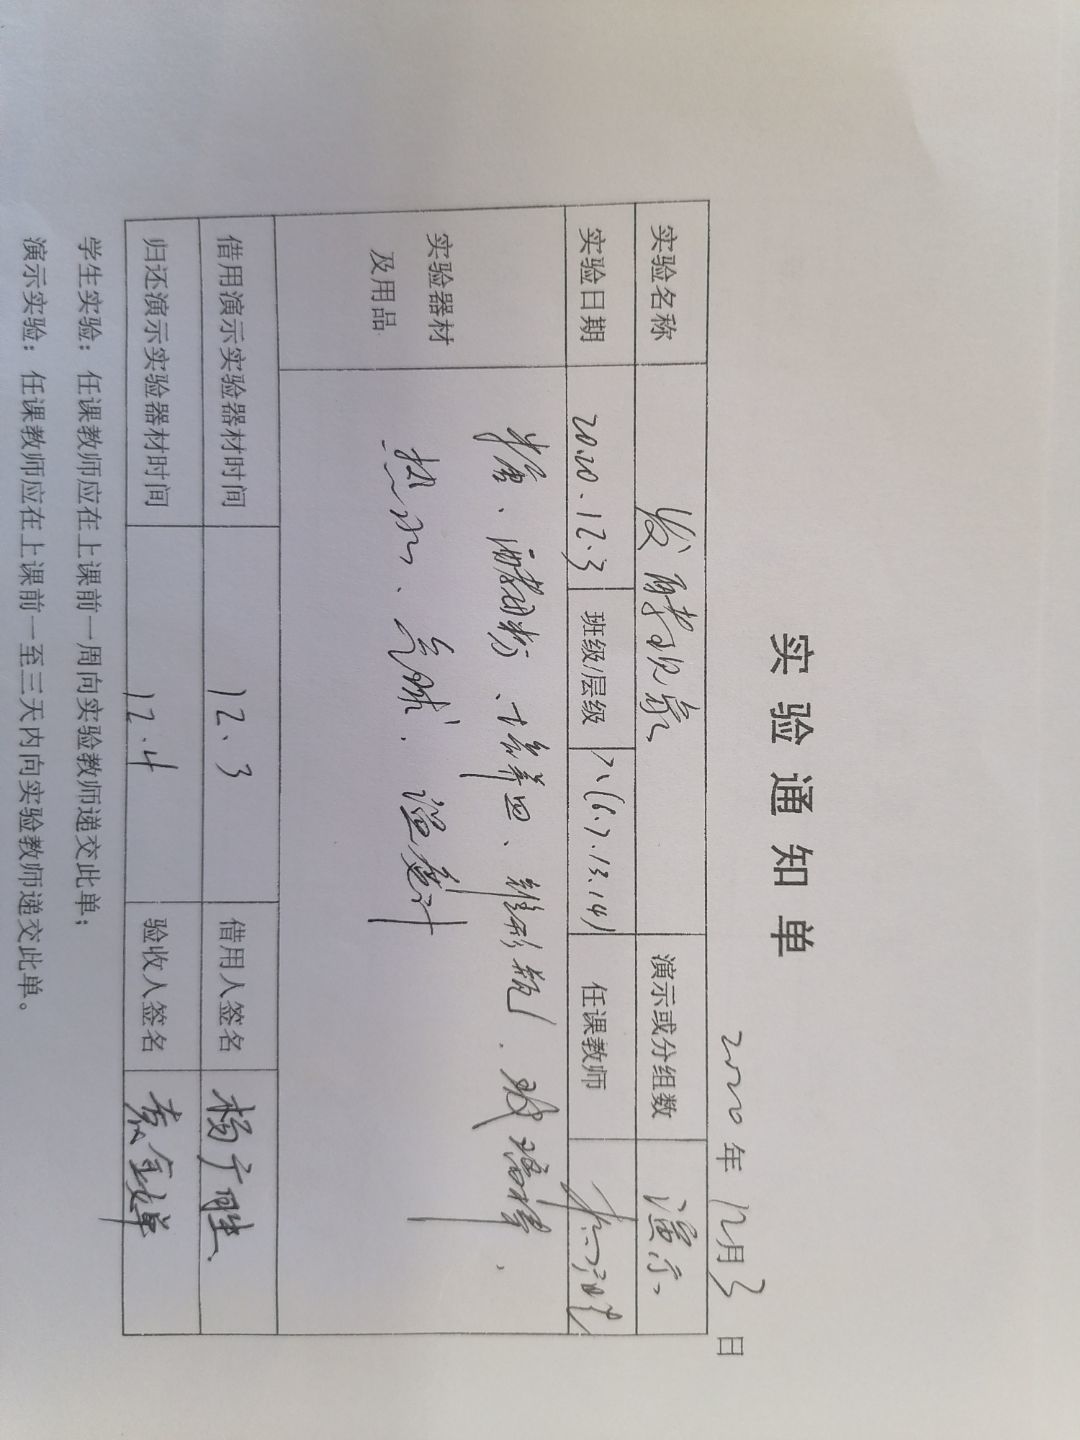 实验通知单
2020年12月3日
实验名称 发酵现象 演示或分组数 演示
实验日期 2020.12.3 班级/层级 八(6.7.13.14) 任课教师
实验器材及用品 糖、酵母粉、培养皿、锥形瓶、玻璃棒、
热水、气球、温度计
借用演示实验器材时间 12.3 借用人签名 杨广胜
归还演示实验器材时间 12.4 验收人签名 袁金婵
学生实验：任课教师应在上课前一周向实验教师递交此单；
演示实验：任课教师应在上课前一至三天内向实验教师递交此单。